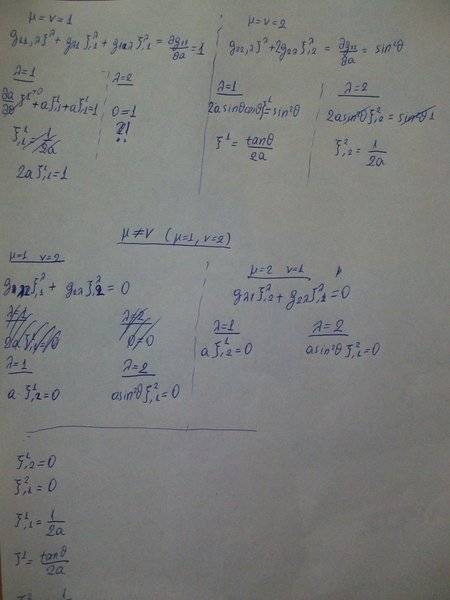 μ=ν=1
g₁₁,λ ξ^λ + g_λ1 ξ^λ,₁ + g₁λ ξ^λ,₁ = ∂g₁₁/∂a = 1
λ=1
∂a/∂θ ξ¹ →0 + aξ¹,₁ + aξ¹,₁ = 1
ξ¹,₁ = 1/2a
2aξ¹,₁ = 1
λ=2
0=1
?!
μ=ν=2
g₂₂,λ ξ^λ + 2g₂λ ξ^λ,₂ = ∂g₂₂/∂a = sin²θ
λ=1
2a sinθ cosθ ξ¹ = sin²θ
ξ¹ = tanθ/2a
λ=2
2a sin²θ ξ²,₂ = sin²θ 1
ξ²,₂ = 1/2a
μ≠ν (μ=1, ν=2)
μ=1 ν=2
ξ^λ,₁ + g₁λ ξ^λ,₂ = 0
λ=1
a ξ¹,₂ = 0
λ=2
a sin²θ ξ²,₁ = 0
μ=2 ν=1
g_λ1 ξ^λ,₂ + g₂λ ξ^λ,₁ = 0
λ=1
a ξ¹,₂ = 0
λ=2
a sin²θ ξ²,₁ = 0
ξ¹,₂ = 0
ξ²,₁ = 0
ξ¹,₁ = 1/2a
ξ¹ = tanθ/2a